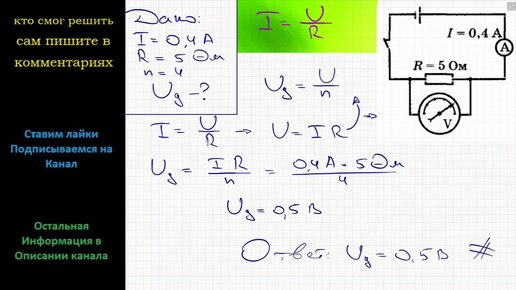 кто смог решить
сам пишите в
комментариях
Ставим лайки
Подписываемся на
Канал
Остальная
Информация в
Описании канала
Дано:
I = 0,4 А
R = 5 Ом
n = 4
Uд - ?
I = U/R
Uд = U/n
I = U/R → U = I R
Uд = I R/n = 0,4 А · 5 Ом/4
Uд = 0,5 В
Ответ: Uд = 0,5 В #
I = 0,4 А
A
R = 5 Ом
V